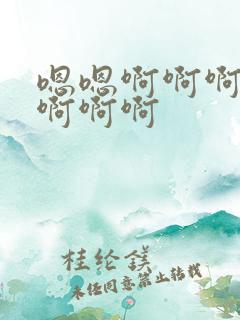 嗯嗯啊啊啊
啊啊啊
桂纶镁
未经同意禁止转载